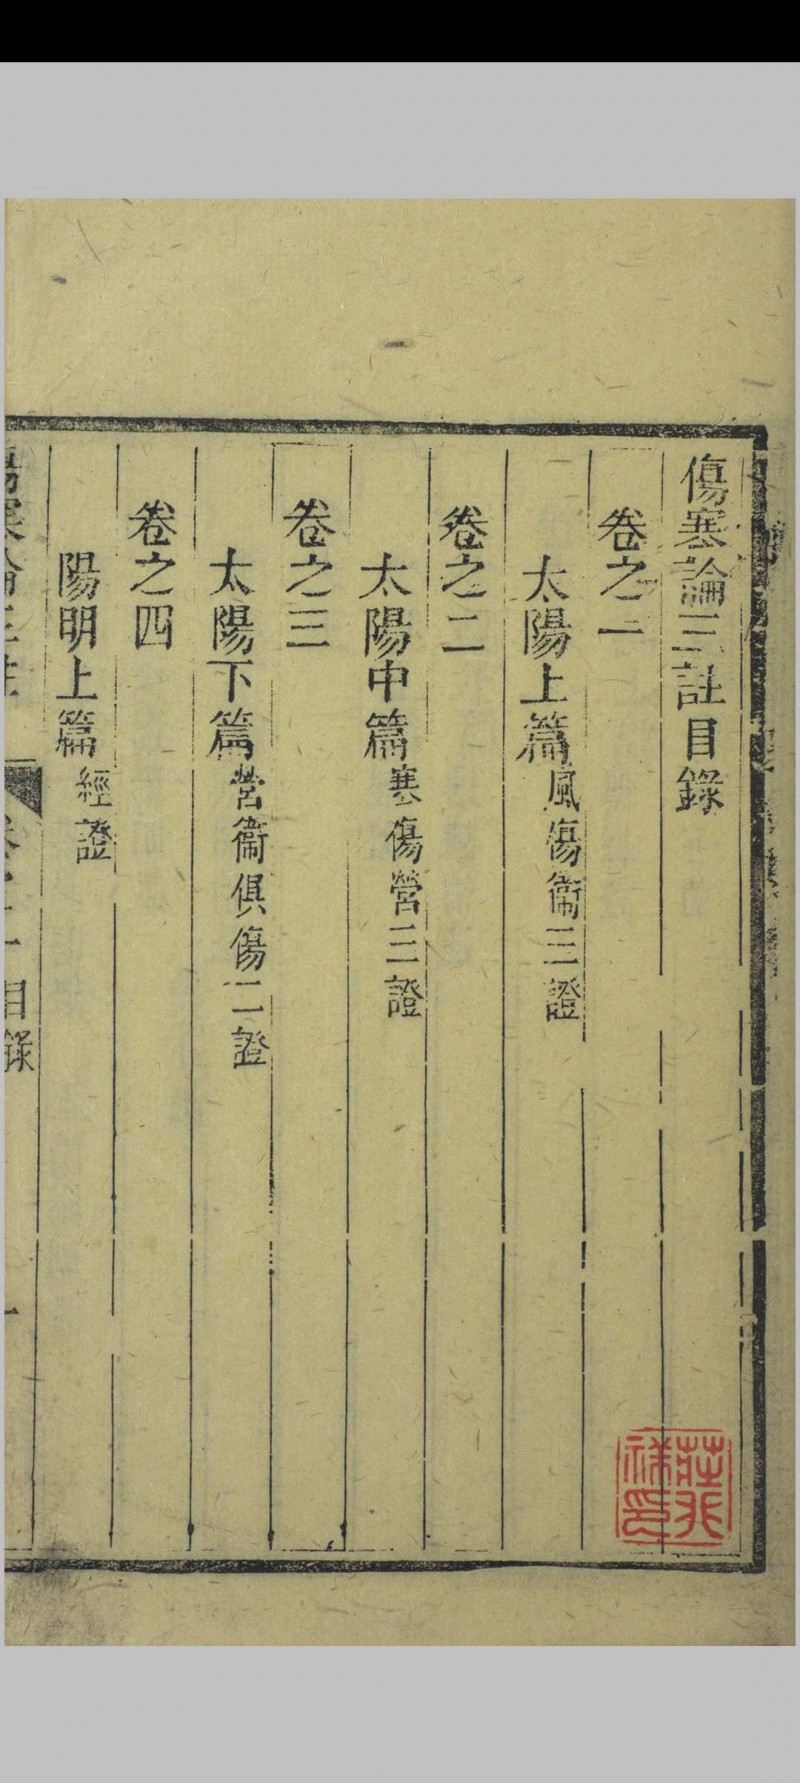 傷寒論三註目錄
卷之一
太陽上篇風傷衞三證
卷之二
太陽中篇寒傷營三證
卷之三
太陽下篇營衞俱傷二證
卷之四
陽明上篇經證
傷寒論三註 卷之一目錄 一